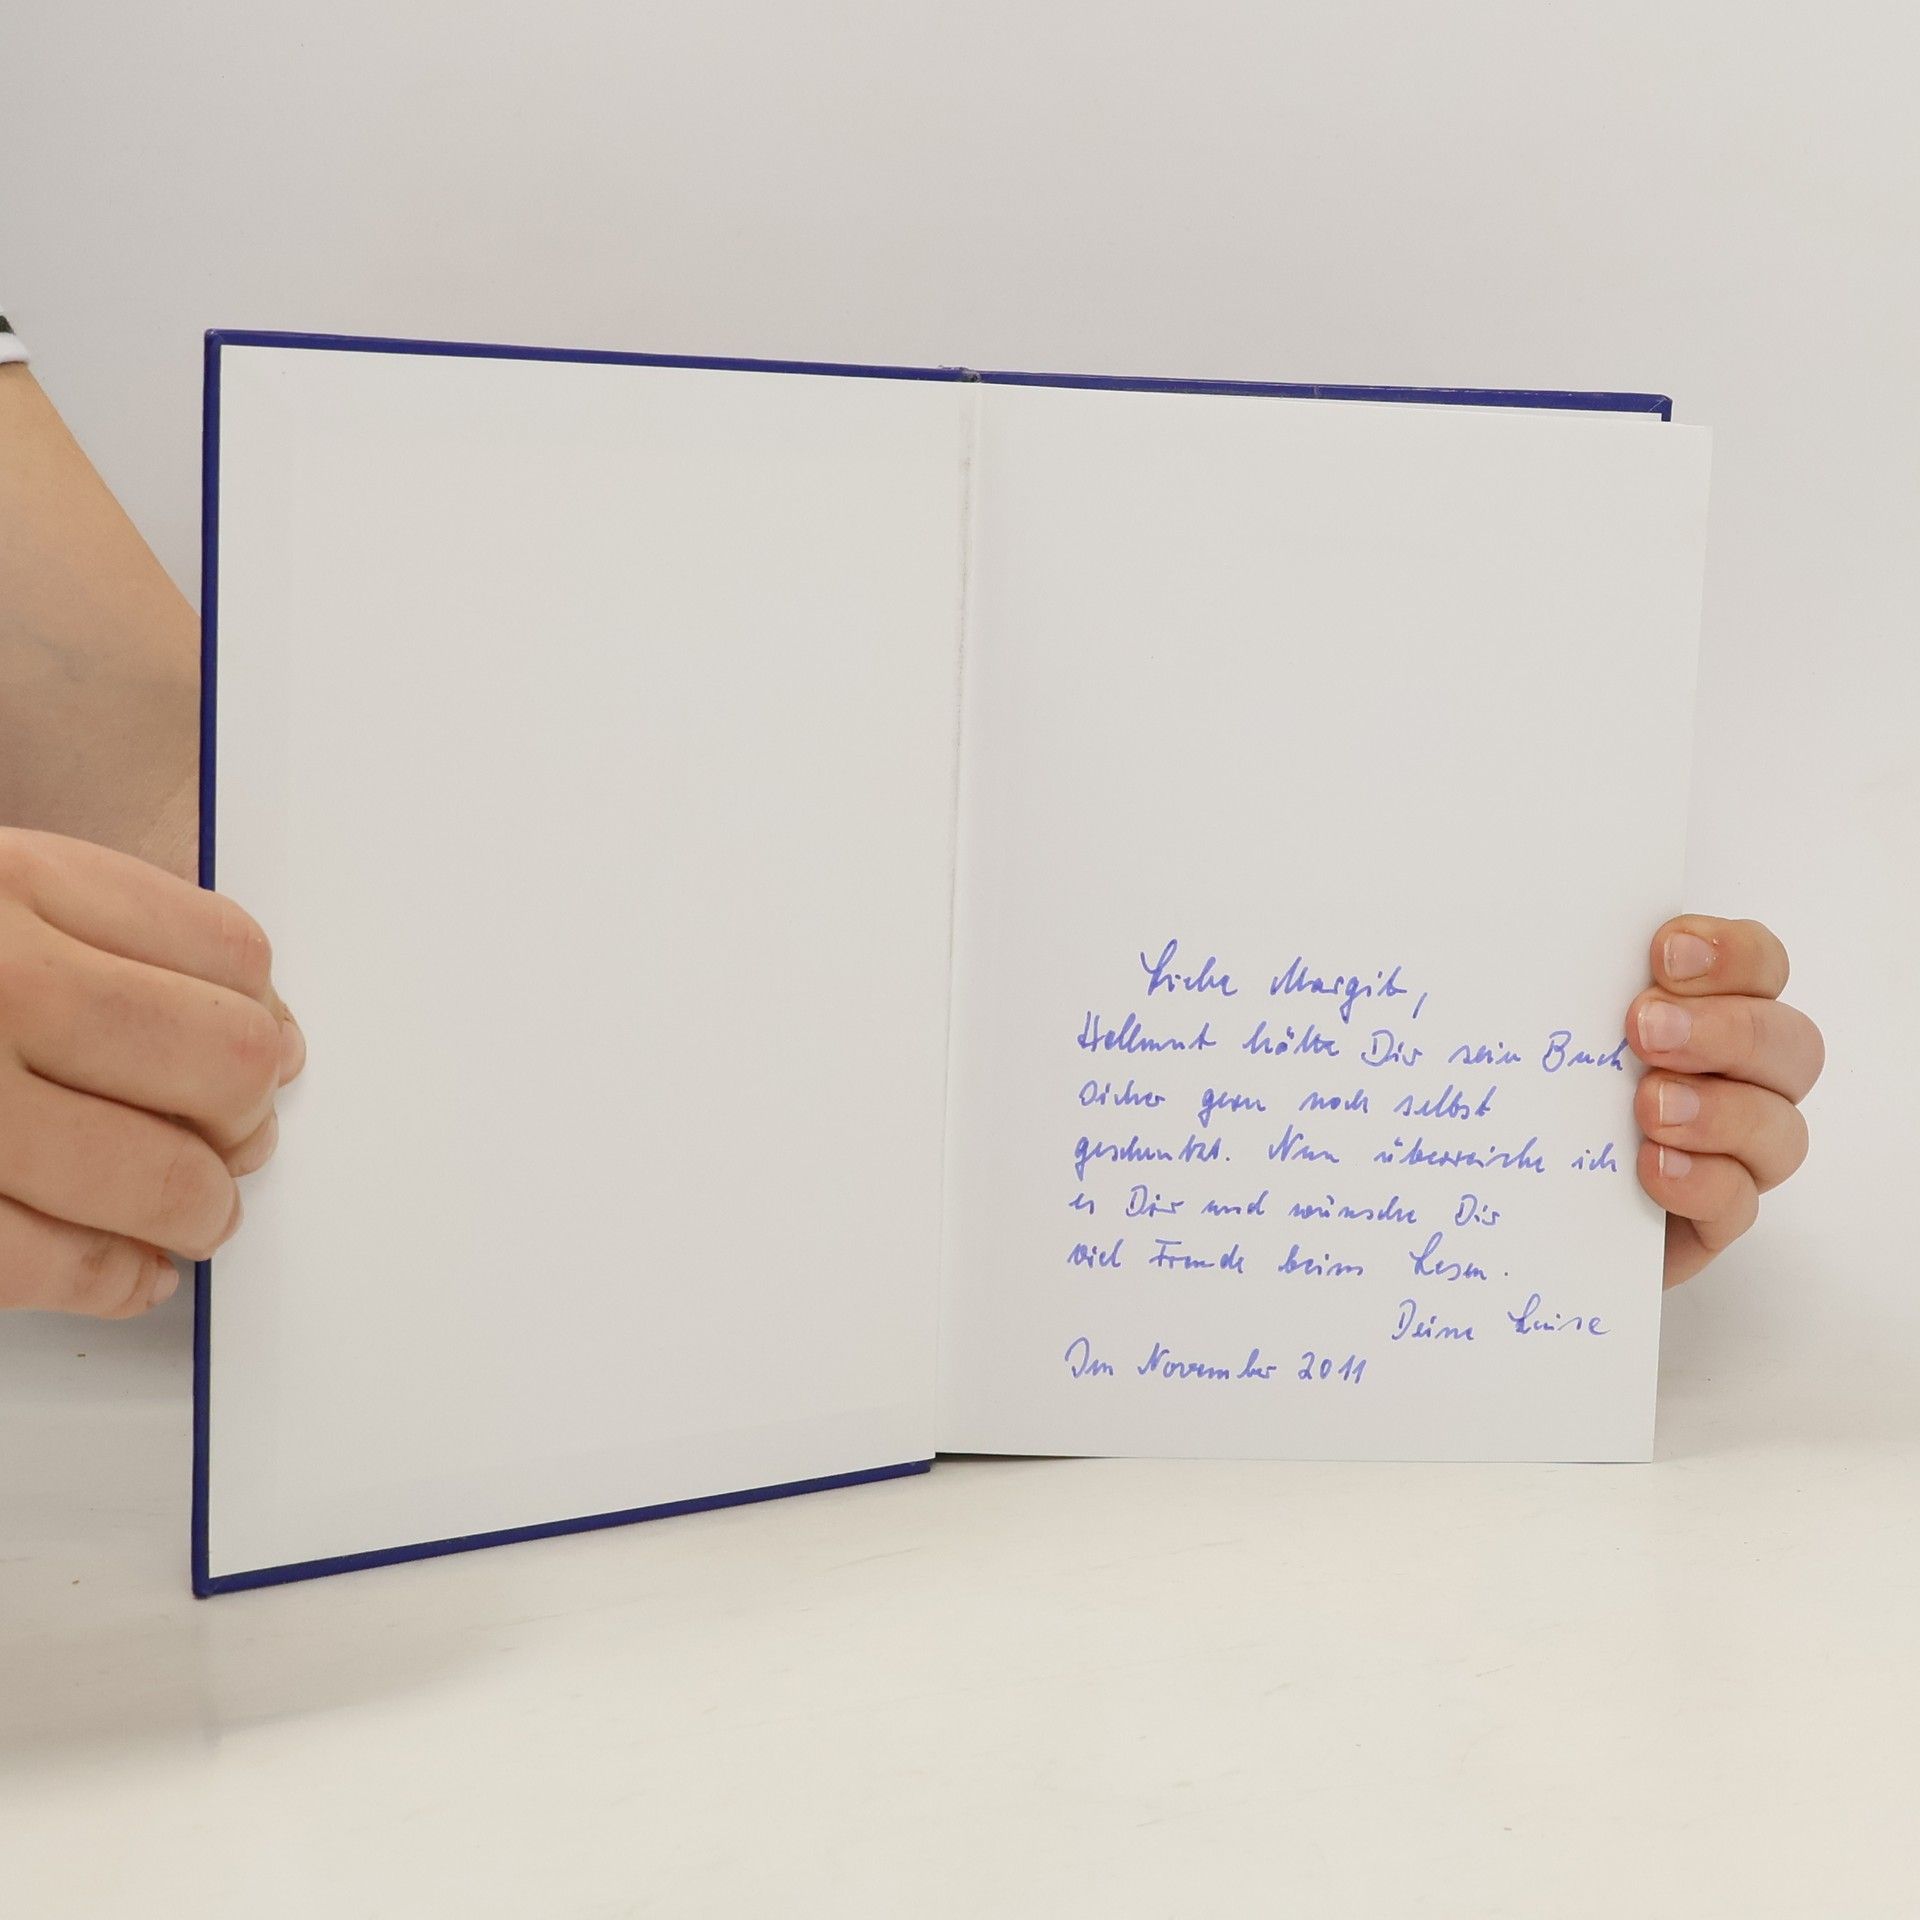 Liebe Margit,
Hellmut hätte Dir sein Buch
sicher gern noch selbst
geschenkt. Nun überreiche ich
es Dir und wünsche Dir
viel Freude beim Lesen.
Deine Luise
Im November 2011